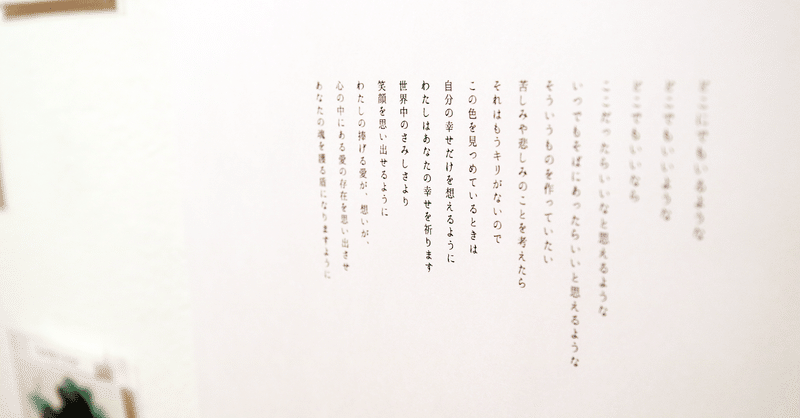 どこにでもいるような
どこでもいいような
どこでもいいなら
ここだったらいいなと思えるような
いつでもそばにあったらいいと思えるような
そういうものを作っていたい
苦しみや悲しみのことを考えたら
それはもうキリがないので
この色を見つめているときは
自分の幸せだけを想えるように
わたしはあなたの幸せを祈ります
世界中のさみしさより
笑顔を思い出せるように
わたしの捧げる愛が、想いが、
心の中にある愛の存在を思い出させ
あなたの魂を護る盾になりますように